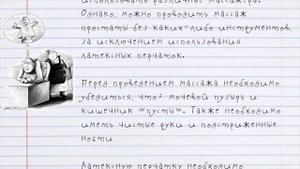 использовать различные массажеры.
Однако, можно проводить массаж
простаты без каких-либо инструментов,
за исключением использования
латексных перчаток.
Перед проведением массажа необходимо
убедиться, что: мочевой пузырь и
кишечник "пусты". Также необходимо
иметь чистые руки и подстриженные
ногти
Латексную перчатку необходимо